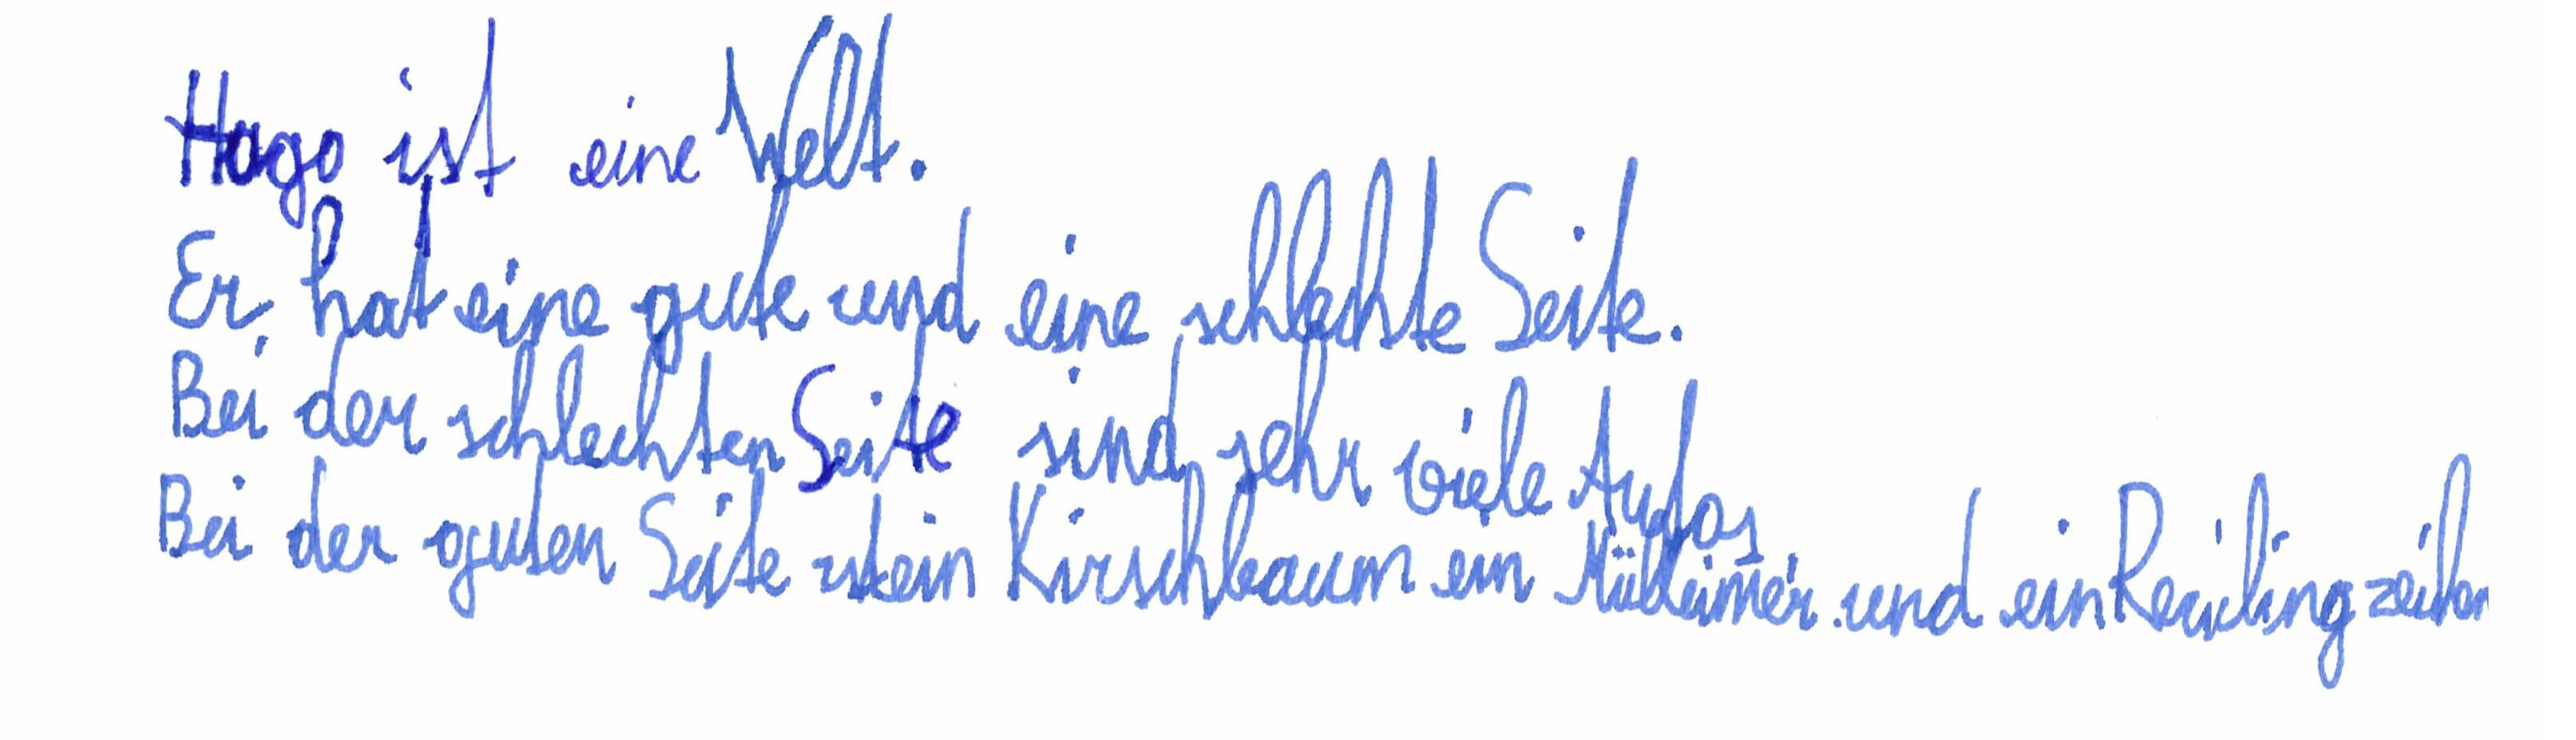 Hugo ist eine Welt.
Er hat eine gute und eine schlechte Seite.
Bei der schlechten Seite sind sehr viele Autos
Bei der guten Seite ist ein Kirschbaum ein Mülleimer und ein